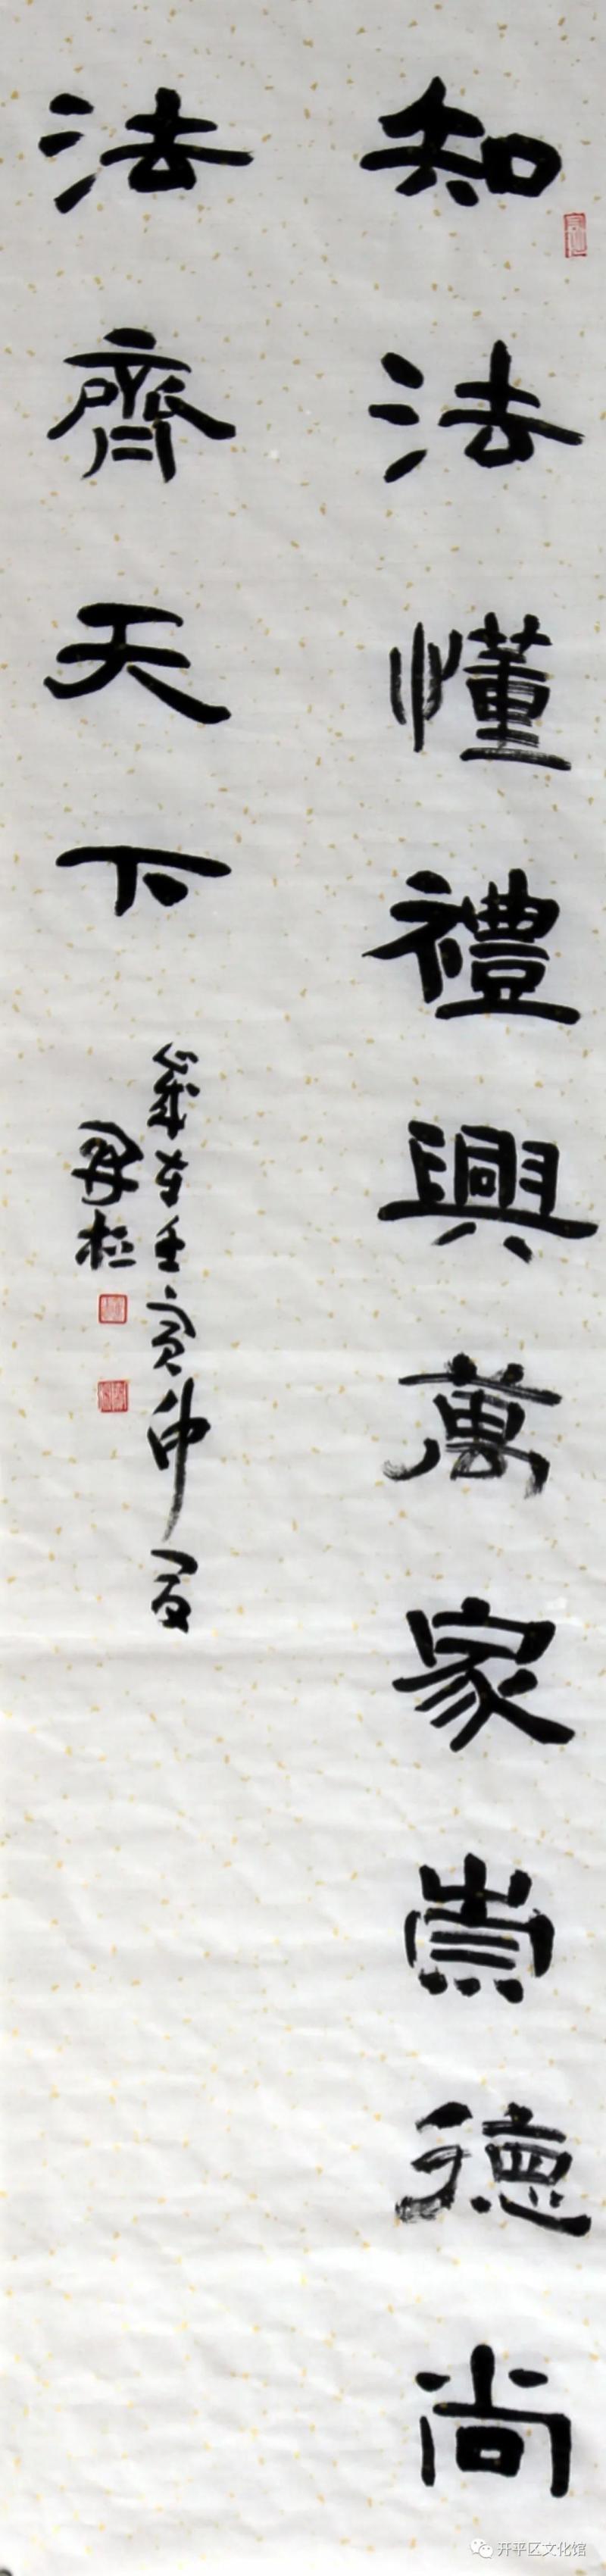 知法懂禮興萬家崇德尚
法齊天下
歲在壬寅仲夏
开平区文化馆